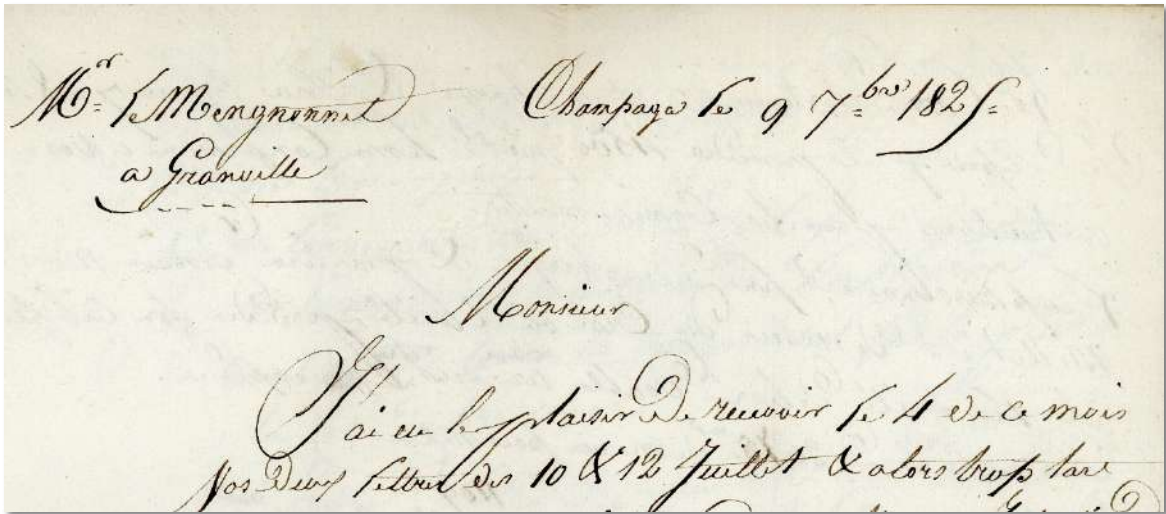 Mr. le Mengnonnet Champaga le 9 7bre 1825.
a Granville
Monsieur
J'ai eu le plaisir De recevoir le 4 de ce mois
Vos Deux lettres des 10 & 12 Juillet & alors trop tard